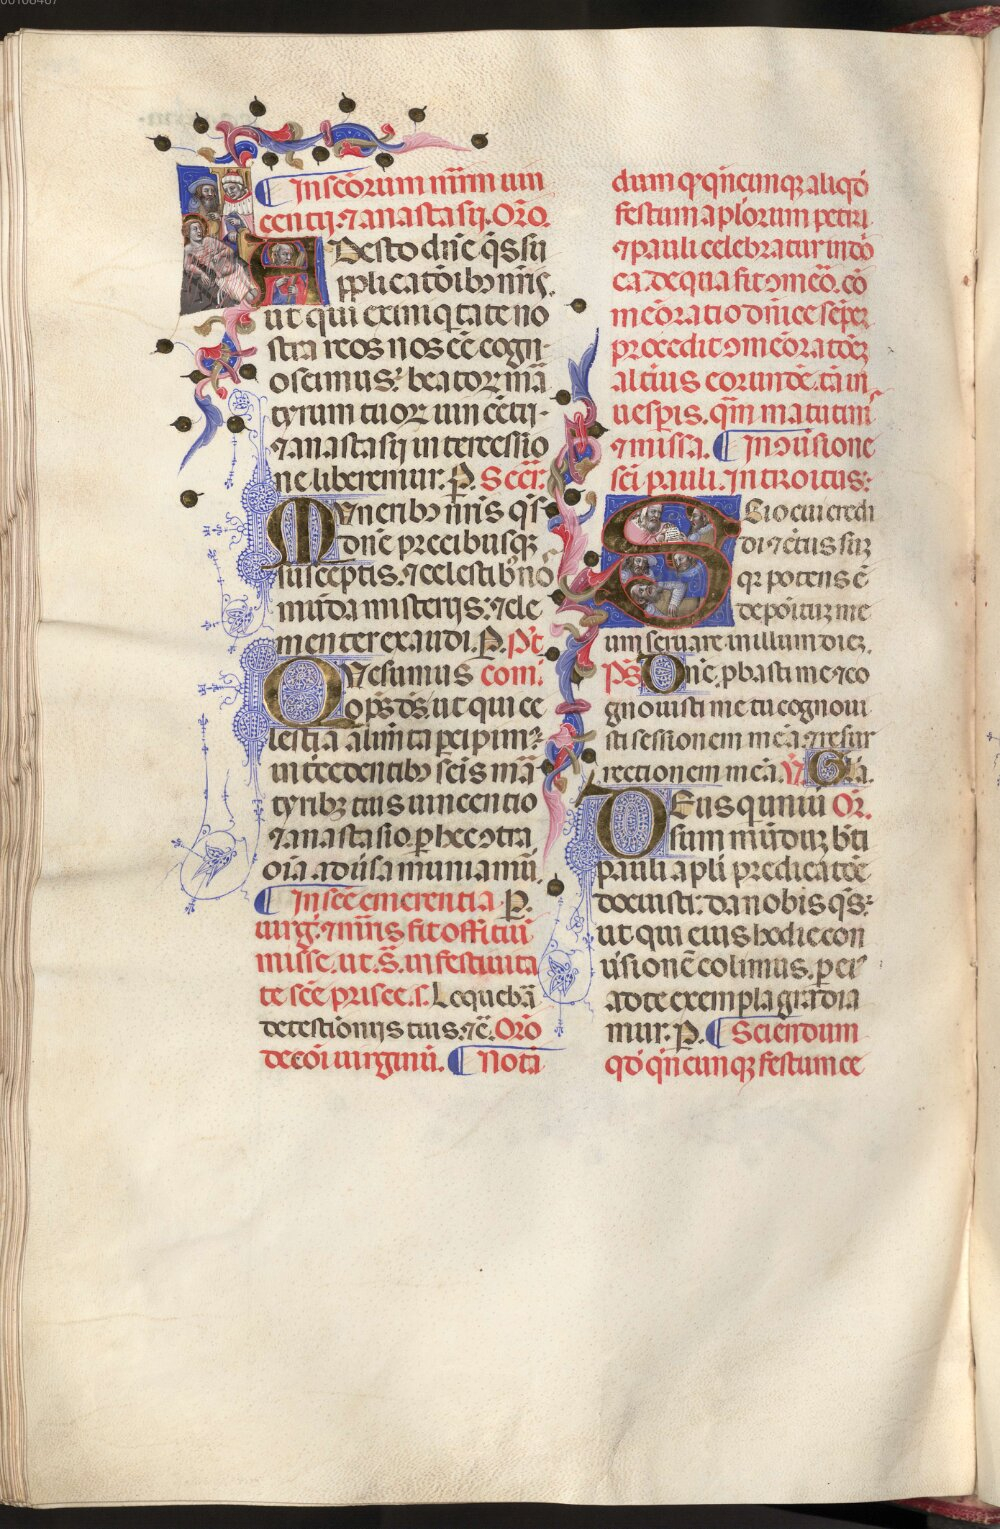 00108407
¶ In scōrum mr̄m uin
centij ⁊ anastasij. Oro.
ADesto dn̄e qs̄ su
pplicatōibȝ nr̄is.
ut qui ex iniq̄tate no
stra reos nos eē cogn-
oscimus: beatoꝝ mā
tyrum tuoꝝ uincētij-
⁊ anastasij intercessio
ne liberemur. P. Secr̄.
MUneribȝ nr̄is qs̄
dn̄e precibusqȝ
susceptis. ⁊ celestibȝ no
mūda misterijs: ⁊ cle
menter exaudi. P. Pꝰt
QUesumus com̄.
op̄s ds̄. ut qui ce
lestia alimēta pcipimꝰ
intēedentibȝ scīs mā
tyribȝ tuis uincentio
⁊ anastasio. p hec ꝯtra
oīa aduīsa muniamū.
¶ In scē emerentia P.
uirg̃. ⁊ mr̄ris fit officiū
misse. ut. S̄. in festiuita
te scē prisce. s. Loquebā
de testimonijs tuis. ⁊c̄. Oro
de cōi uirginū. ¶ Nota
dum qꝫ qn̄cumqȝ aliqđ
festum aplorum petri
⁊ pauli celebratur in eō
ca. de qua fit ꝯmeō. cō
meōratio dn̄ice semꝑ
procedit ꝯmeōratōeȝ
altīus eorundē. tā in
uesp̄is. qm̄ matutinis
⁊ missa. ¶ In ꝯūsione
sc̄i pauli. Introitus:
SCio cui credi
di ⁊ c̄tus suȝ
qꝛ potens ē
depoitū me
um seruare in illum dieȝ.
Ps̄. Dn̄e. pbasti me ⁊ co
gnouisti me tu cognoui
sti sessionem meā. ⁊ resur
rectionem meā. V̄. Gl̄a.
DEus qui uniū Or̄.
sum mūduȝ bt̄i
pauli apli predicatōe
docuisti: da nobis qs̄:
ut qui eius hodie con
ūsionē colimus. p ei'
ad te exempla gradia
mur. P. ¶ Sciendum
qđ qn̄cunqȝ festum ce